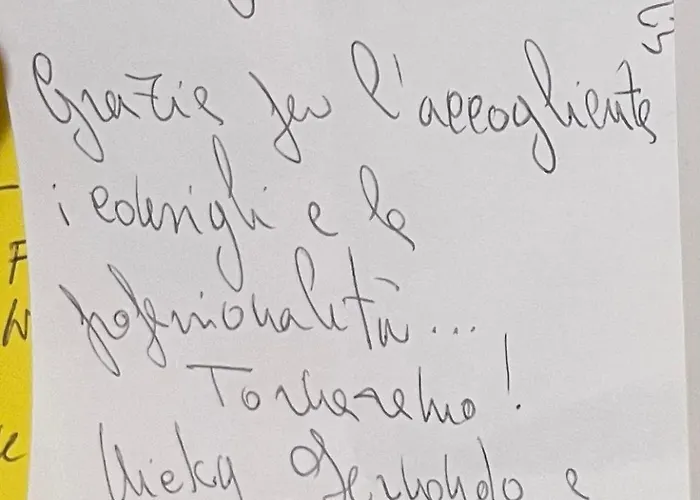 Grazie per l'accogliente
i consigli e la
professionalità...
Torneremo!
Micky Fernando e
F